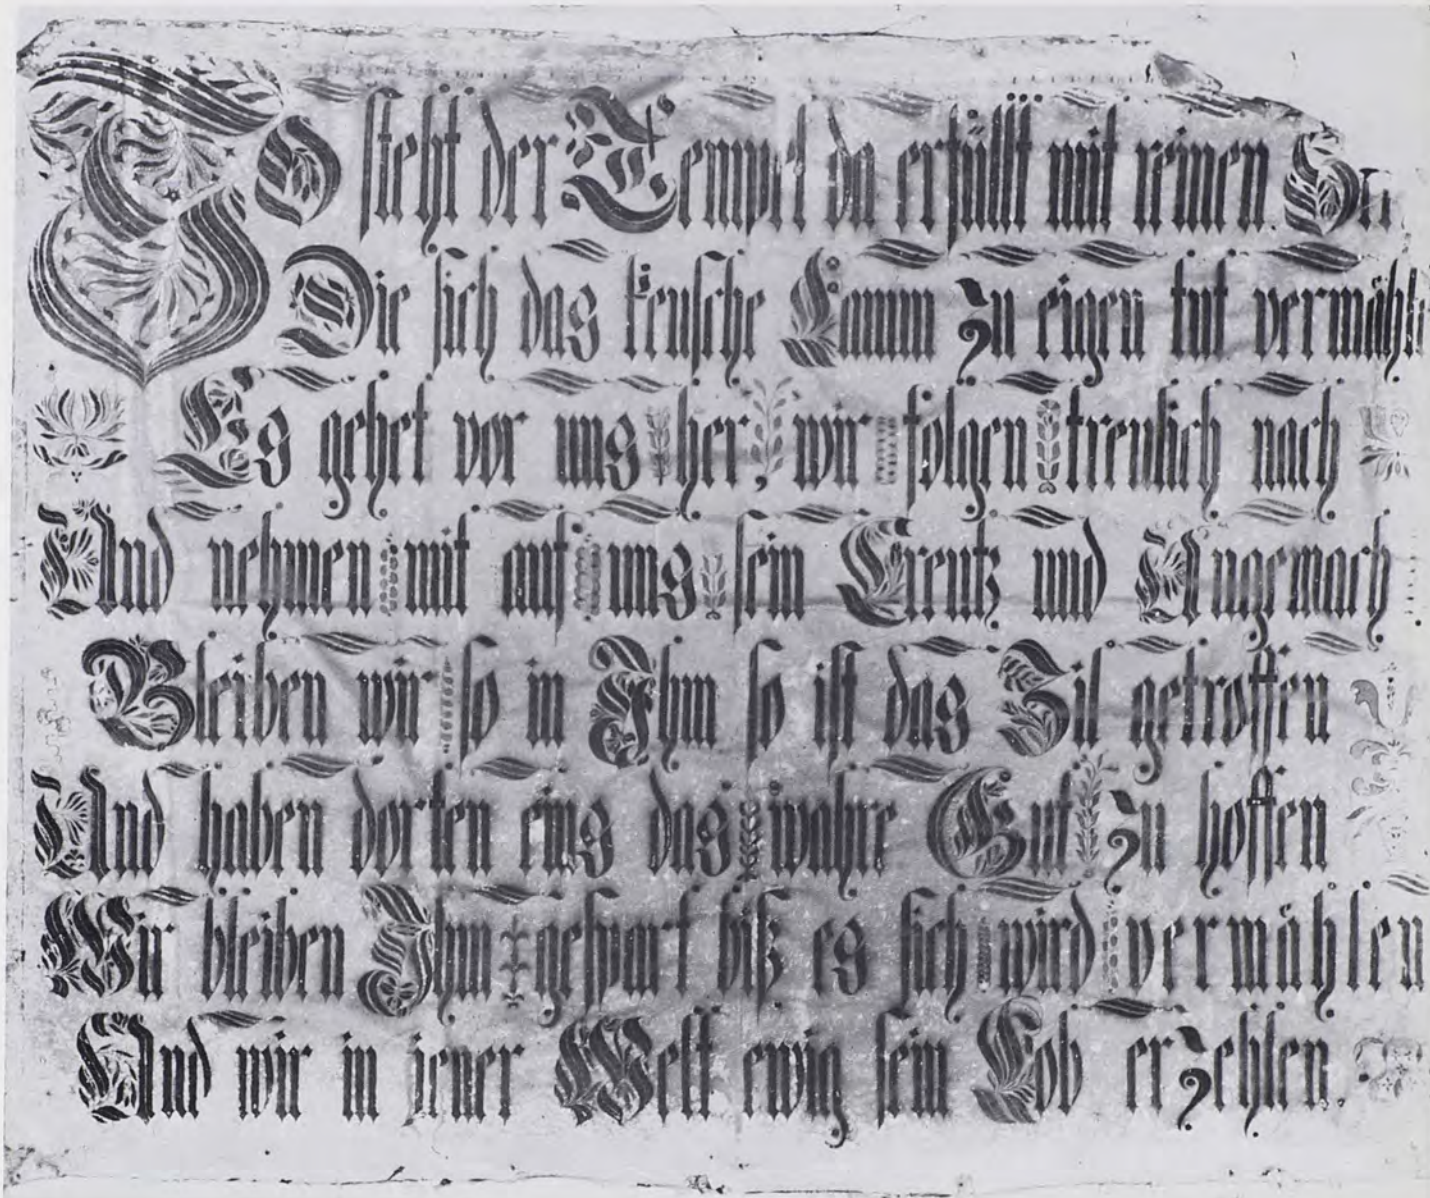 SO steht der Tempel da erfüllt mit reinen
Die sich das keusche Lamm zu eigen tut vermähl
Es gehet vor uns her, wir folgen treulich nach
Und nehmen mit auf uns sein Creutz und Ungemach
Bleiben wir so in Ihm so ist das Zil getroffen
Und haben dorten eins das wahre Gut zu hoffen
Wir bleiben Ihm gespart biß es sich wird vermählen
Und wir in jener Welt ewig sein Lob erzehlen.